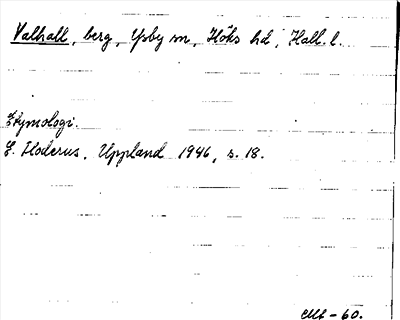 Valhall, berg, Ysby sn, Höks hd, Hall. l.
Etymologi.
E. Floderus, Uppland 1946, s. 18.
-60.